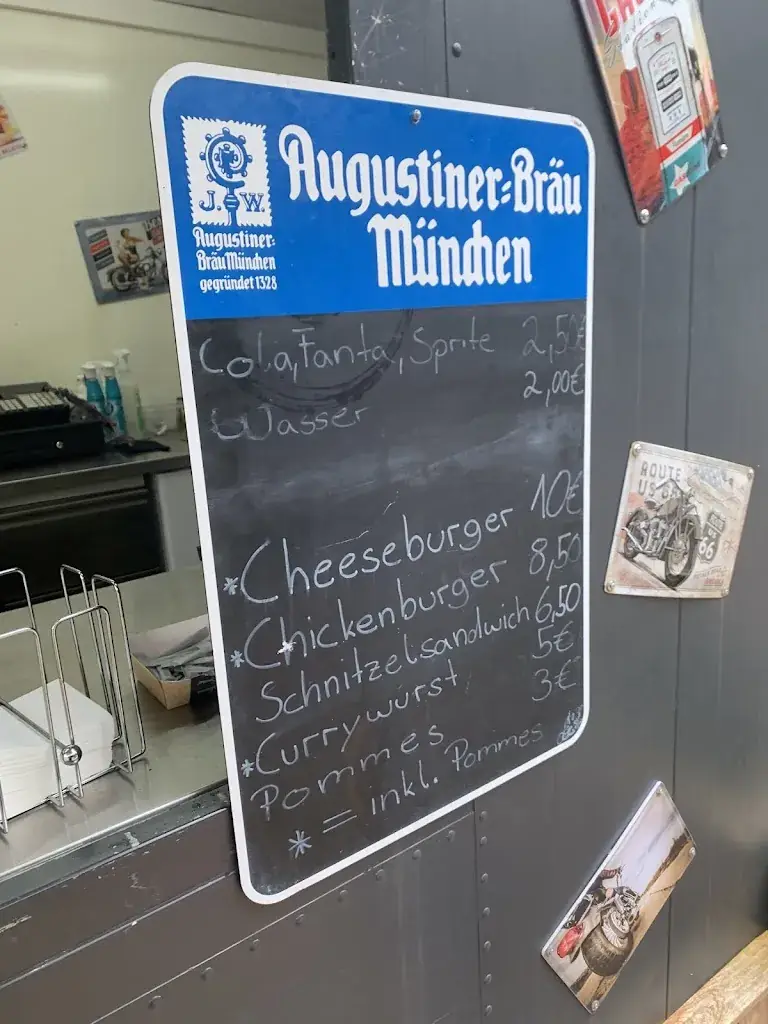 J. W.
Augustiner-
Bräu München
gegründet 1328
Augustiner-Bräu
München
Cola, Fanta, Sprite 2,50€
Wasser 2,00€
*Cheeseburger 10€
*Chickenburger 8,50
Schnitzelsandwich 6,50
*Currywurst 5€
Pommes 3€
* = inkl. Pommes
ROUTE
66